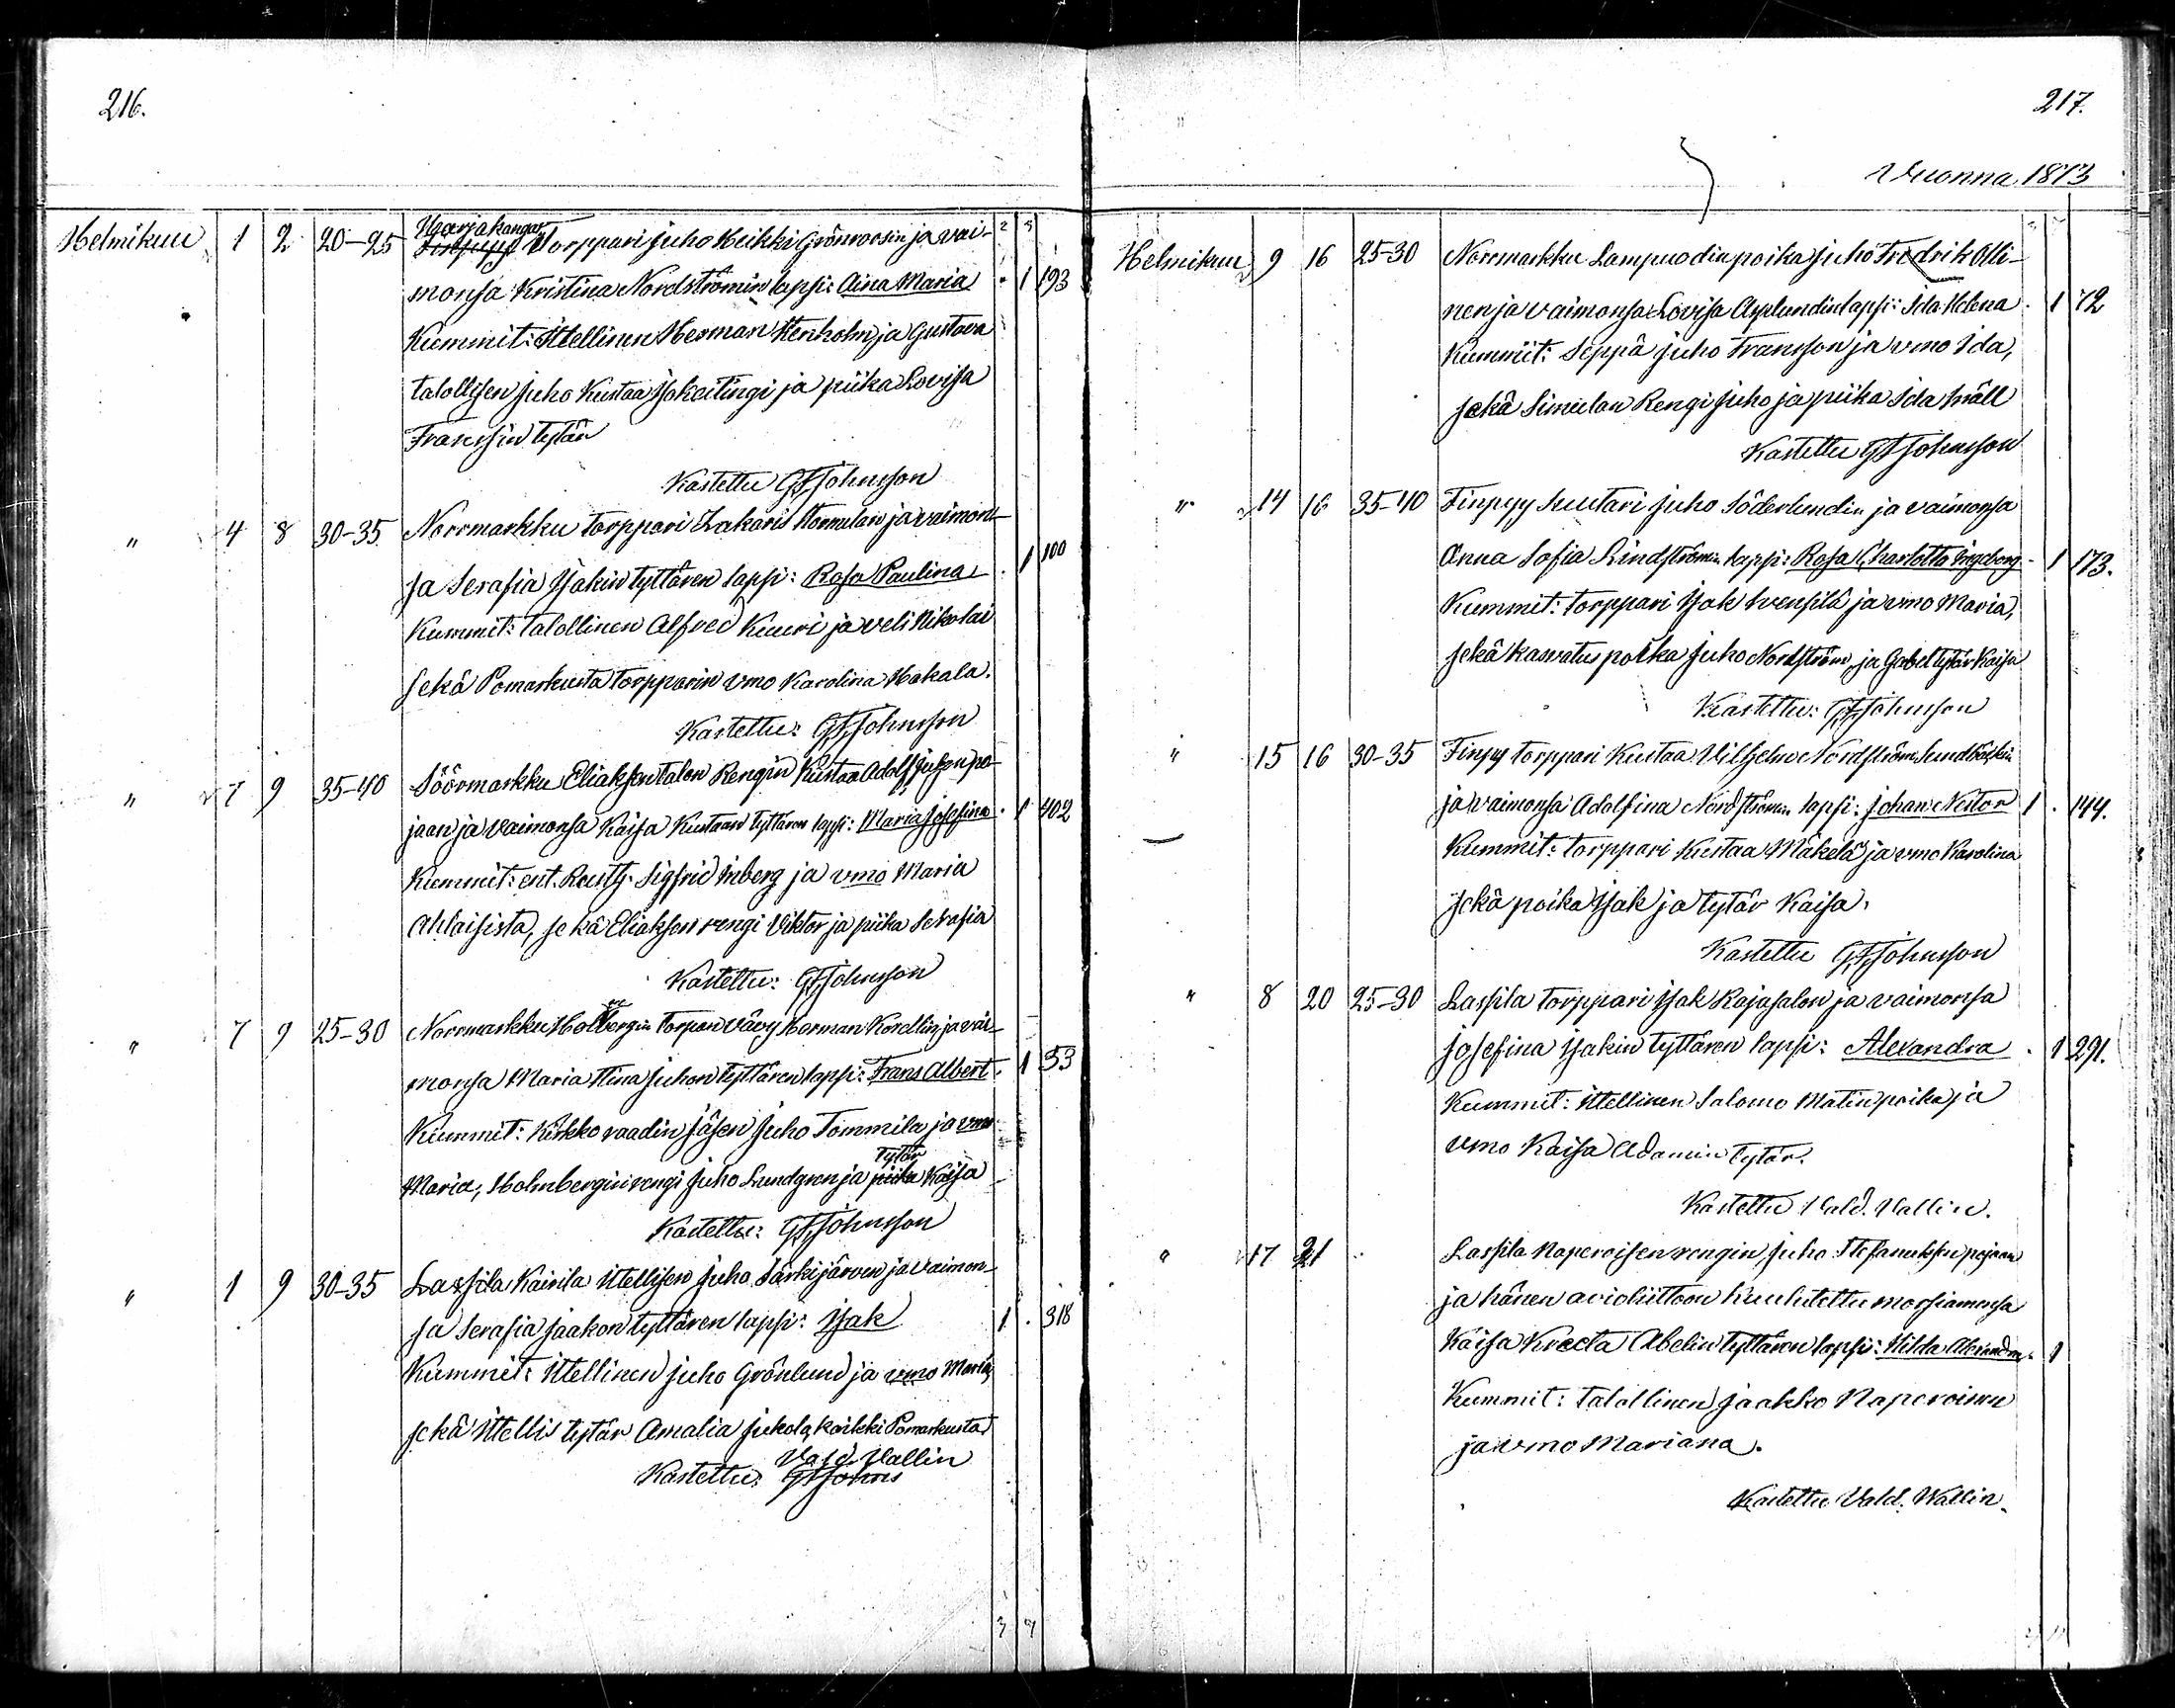 216.
Helmikuu 1 2 20-25 Harjakangas Torppari Juho Heikki Grönroosin ja vai- 2 5
monsa Kristina Nordströmin lapsi: Aina Maria . 1 193
Kummit: Itellinen Herman Stenholm ja Gustava
talollisen Juho Kustaa Isokeitingi ja piika Lovisa
Franssin tytär
Kastettu GFJohnsson
" 4 8 30-35 Norrmarkku torppari Zakaris Stormulan ja vaimon-
sa Serafia Isakin tyttären lapsi: Rosa Paulina . 1 100
Kummit: talollinen Alfred Kuuri ja veli Nikolai
sekä Pomarkusta torpparin vmo Karolina Hakala.
Kastettu: GFJohnsson
" 7 9 35-40 Söörmarkku Eliaksen talon Rengin Kustaa Adolf Juhonpo-
jaan ja vaimonsa Kaisa Kustaan tyttären lapsi: Maria Josefina . 1 402
Kummit: ent. Rusth. Sigfrid Inberg ja vmo Maria
Ahlaisista, sekä Eliaksen rengi Viktor ja piika Serafia
Kastettu: GFJohnsson
" 7 9 25-30 Norrmarkku Holmbergin torpan vävy Herman Kördling ja vai-
monsa Maria Stina Juhon tyttären lapsi: Frans Albert . 1 53
Kummit: Kirkko raadin jäsen Juho Tommila ja vmo
Maria, Holmbergin rengi Juho Lundgren ja piika tytär Kaisa
Kastettu: GFJohnsson
" 1 9 30-35 Lassila Kairila Itellisen Juho Särkijärven ja vaimon-
sa Serafia Jaakon tyttären lapsi: Isak 1 . 318
Kummit: Itellinen Juho Grönlund ja vmo Maria,
sekä Itellis tytär Amalia Jukola, kaikki Pomarkusta
Vald. Vallin
Kastettu: GFJohns
3 7
217.
Vuonna 1873
Helmikuu 9 16 25-30 Norrmarkku Lampuodin poika Juho Fredrik Olli-
nen ja vaimonsa Lovisa Asplundin lapsi: Ida Helena . 1 72
Kummit: Seppä Juho Fransson ja vmo Ida,
sekä Simulan Rengi Juho ja piika Ida Mäll
Kastettu GFJohnsson
" 14 16 35-40 Finpyy Suutari Juho Söderlundin ja vaimonsa
Anna Sofia Lindströmin lapsi: Rosa Charlotta Ingeborg . 1 173.
Kummit: torppari Isak Svensilä ja vmo Maria,
sekä kasvatus poika Juho Nordström, ja Gabel tytär Kaisa
Kastettu: GFJohnsson
" 15 16 30-35 Finpy torppari Kustaa Vilhelm Nordström Sundbäckin
ja vaimonsa Adolfina Nordströmin lapsi: Johan Nestor 1 . 144.
Kummit: torppari Kustaa Mäkelä ja vmo Karolina
sekä poika Isak ja tytär Kaisa.
Kastettu GFJohnsson
" 8 20 25-30 Lassila torppari Isak Rajasalon ja vaimonsa
Josefina Isakin tyttären lapsi: Alexandra . 1 291.
Kummit: Itellinen Salomo Matinpoika ja
vmo Kaisa Adamin tytär.
Kastettu Vald. Vallin.
" 17 21 Lassila Naperoisen rengin Juho Stefanuksen pojaan
ja hänen avioliittoon kuulutettu morsiamensa
Kaisa Kreeta Abelin tyttären lapsi: Hilda Alexandra . 1
Kummit: talollinen Jaakko Naperoinen
ja vmo Mariana.
Kastettu Vald. Wallin.